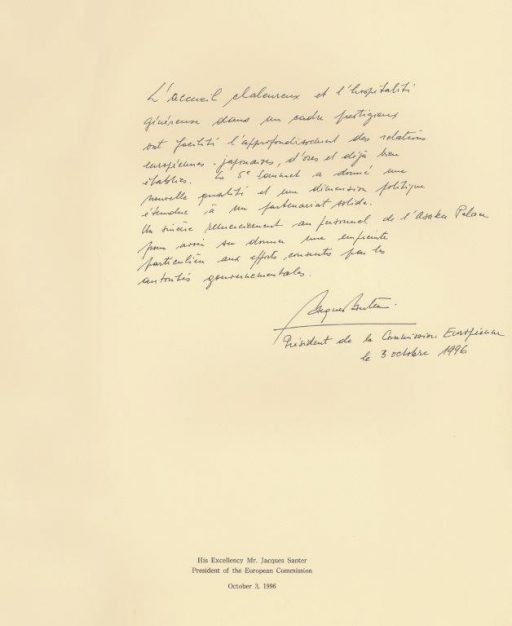 L'accueil chaleureux et l'hospitalité
généreuse dans un cadre prestigieux
ont facilité l'approfondissement des relations
européennes-japonaises, d'ores et déjà bien
établies. Le 5e Sommet a donné une
nouvelle qualité et une dimension politique
étendue à un partenariat solide.
Un sincère remerciement au personnel de l'Asaka Palace
pour avoir su donner une empreinte
particulière aux efforts consentis par les
autorités gouvernementales.
Jacques Santer
Président de la Commission Européenne
le 3 octobre 1996
His Excellency Mr. Jacques Santer
President of the European Commission
October 3, 1996